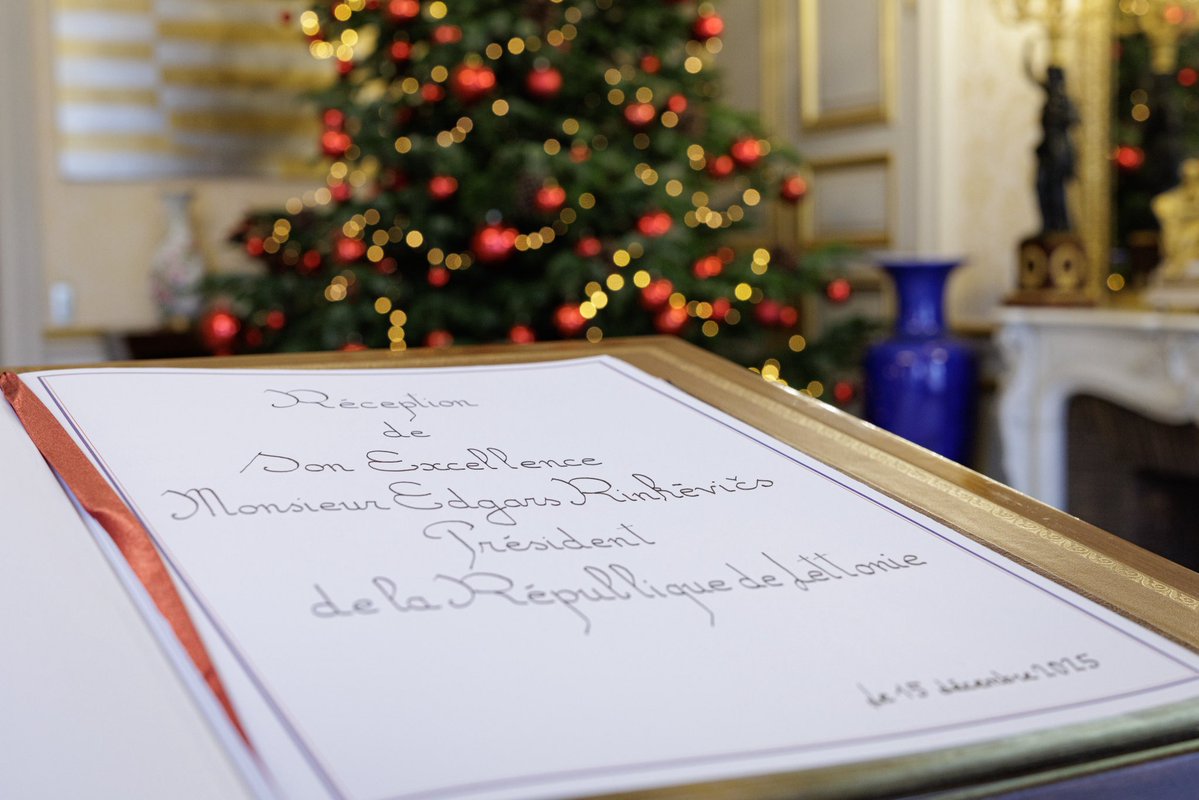 Réception
de
Son Excellence
Monsieur Edgars Rinkēvičs
Président
de la République de Lettonie
le 15 décembre 2025